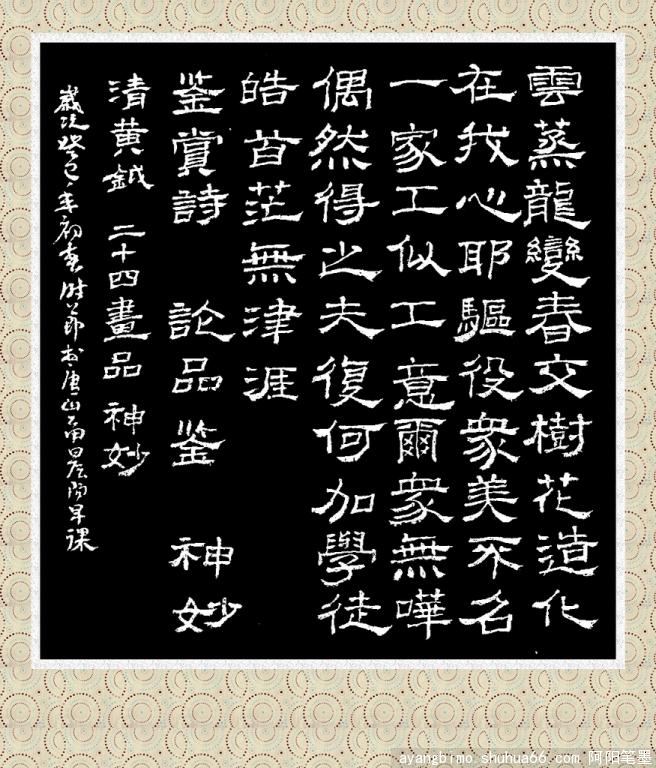 雲蒸龍變春交樹花造化
在我心耶驅役衆美不名
一家工似工意爾衆無嘩
偶然得之夫復何加學徒
皓首茫無津涯
鉴賞詩 論品鉴 神妙
清黄鉞 二十四畫品 神妙
歲次癸巳年初春时节於唐山南早课
ayangbimo.shuhua66.com 阿阳笔墨